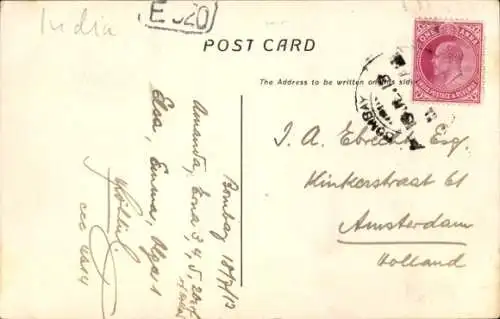 India
E 520
POST CARD
The Address to be written on this side
ONE ANNA
INDIA POSTAGE & REVENUE
BOMBAY
J. A. Ebrecht Esq.
Kinkerstraat 61
Amsterdam
Holland
Bombay 10/7/12
Amanda, Zona 3, 4, 5, 20
Elsa, Emma, Olga 1